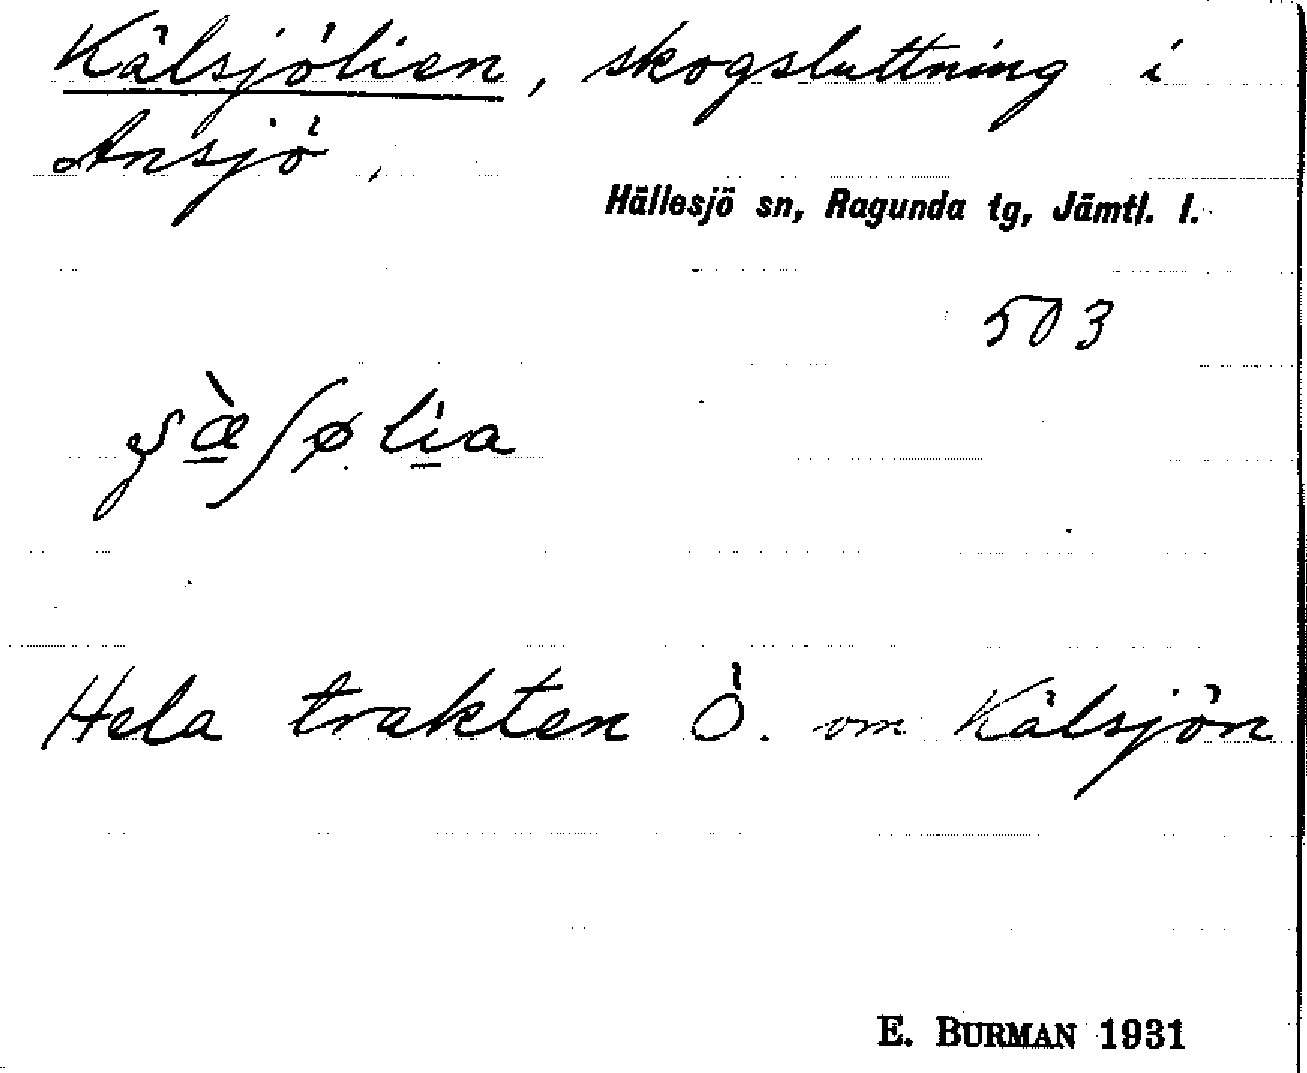 Kälsjölien, skogsluttning i
Ansjö,
Hällesjö sn, Ragunda tg, Jämtl. l.
503
Hela trakten Ö. om Kälsjön
E. BURMAN 1931